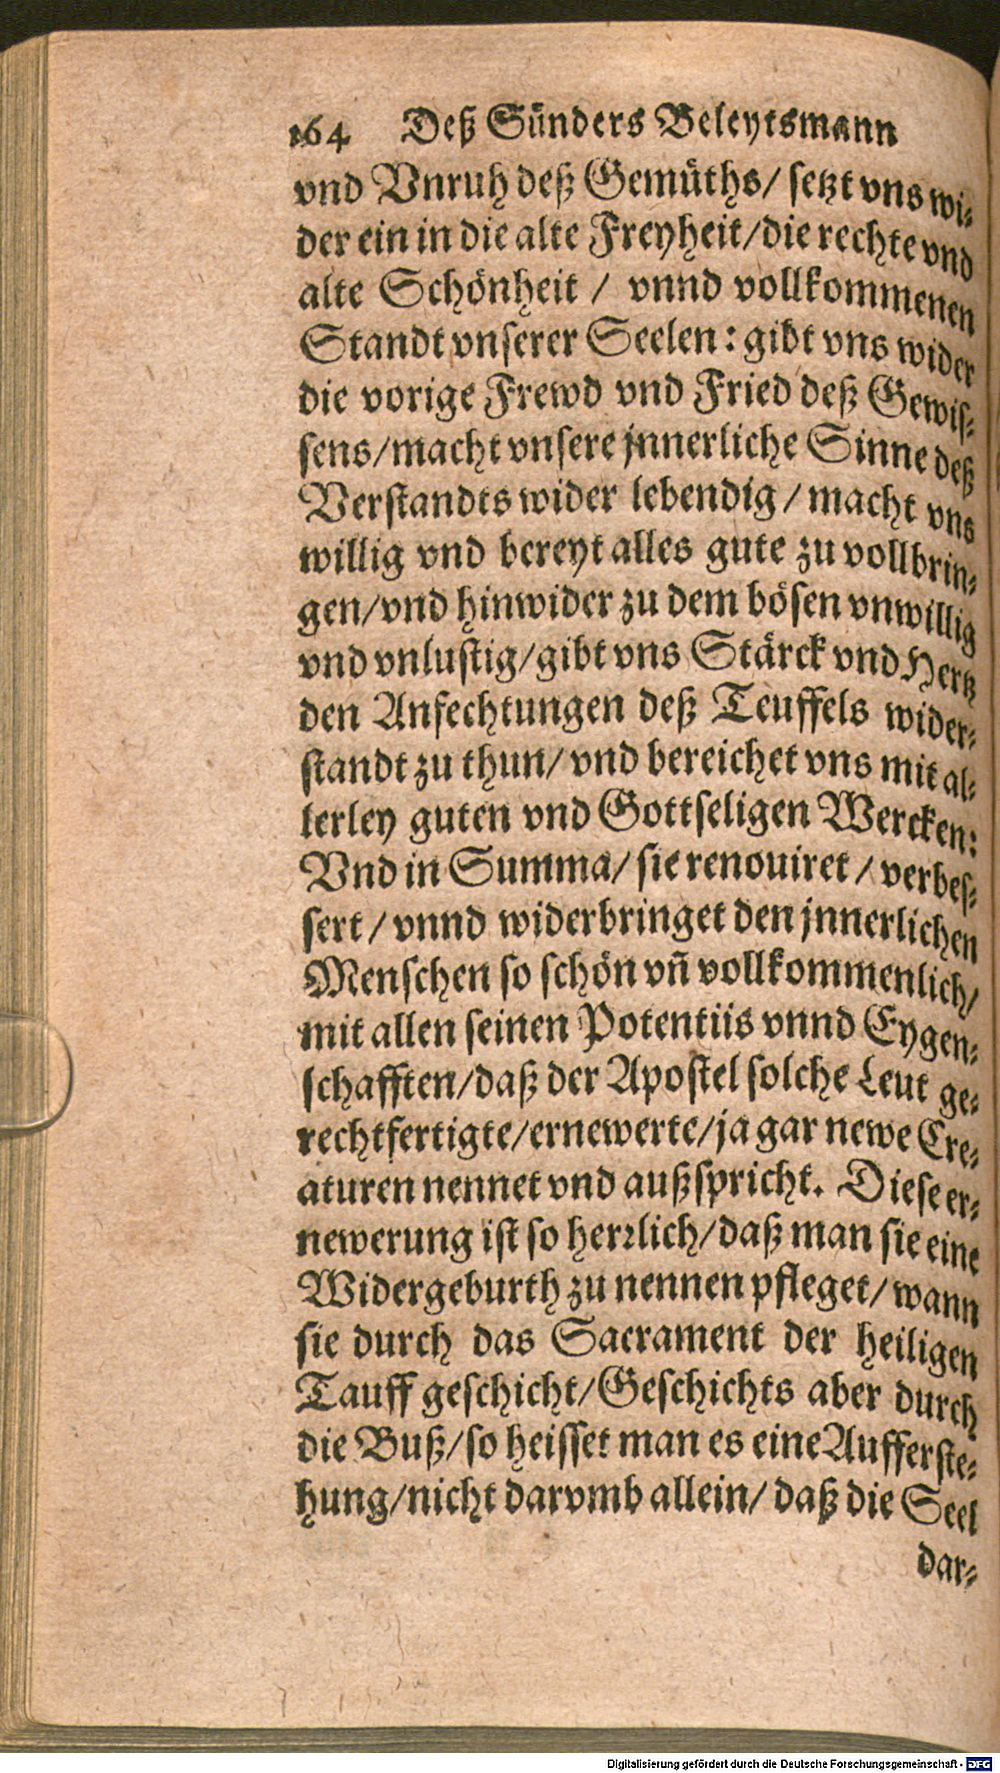 164 Deß Sünders Beleytsmann
vnd Vnruh deß Gemüths/ setzt vns wi-
der ein in die alte Freyheit/die rechte vnd
alte Schönheit / vnnd vollkommenen
Standt vnserer Seelen: gibt vns wider
die vorige Frewd vnd Fried deß Gewis-
sens/macht vnsere jnnerliche Sinne deß
Verstandts wider lebendig/ macht vns
willig vnd bereyt alles gute zu vollbrin-
gen/vnd hinwider zu dem bösen vnwillig
vnd vnlustig/gibt vns Stärck vnd Hertz
den Anfechtungen deß Teuffels wider-
standt zu thun/ vnd bereichet vns mit al-
lerley guten vnd Gottseligen Wercken:
Vnd in Summa/ sie renouiret / verbes-
sert / vnnd widerbringet den jnnerlichen
Menschen so schön vñ vollkommenlich/
mit allen seinen Potentiis vnnd Eygen-
schafften/daß der Apostel solche Leut ge-
rechtfertigte/ernewerte/ja gar newe Cre-
aturen nennet vnd außspricht. Diese er-
newerung ist so herrlich/daß man sie eine
Widergeburth zu nennen pfleget/ wann
sie durch das Sacrament der heiligen
Tauff geschicht/Geschichts aber durch
die Buß/so heisset man es eine Aufferste-
hung/nicht darvmb allein/ daß die Seel
dar-
Digitalisierung gefördert durch die Deutsche Forschungsgemeinschaft - DFG